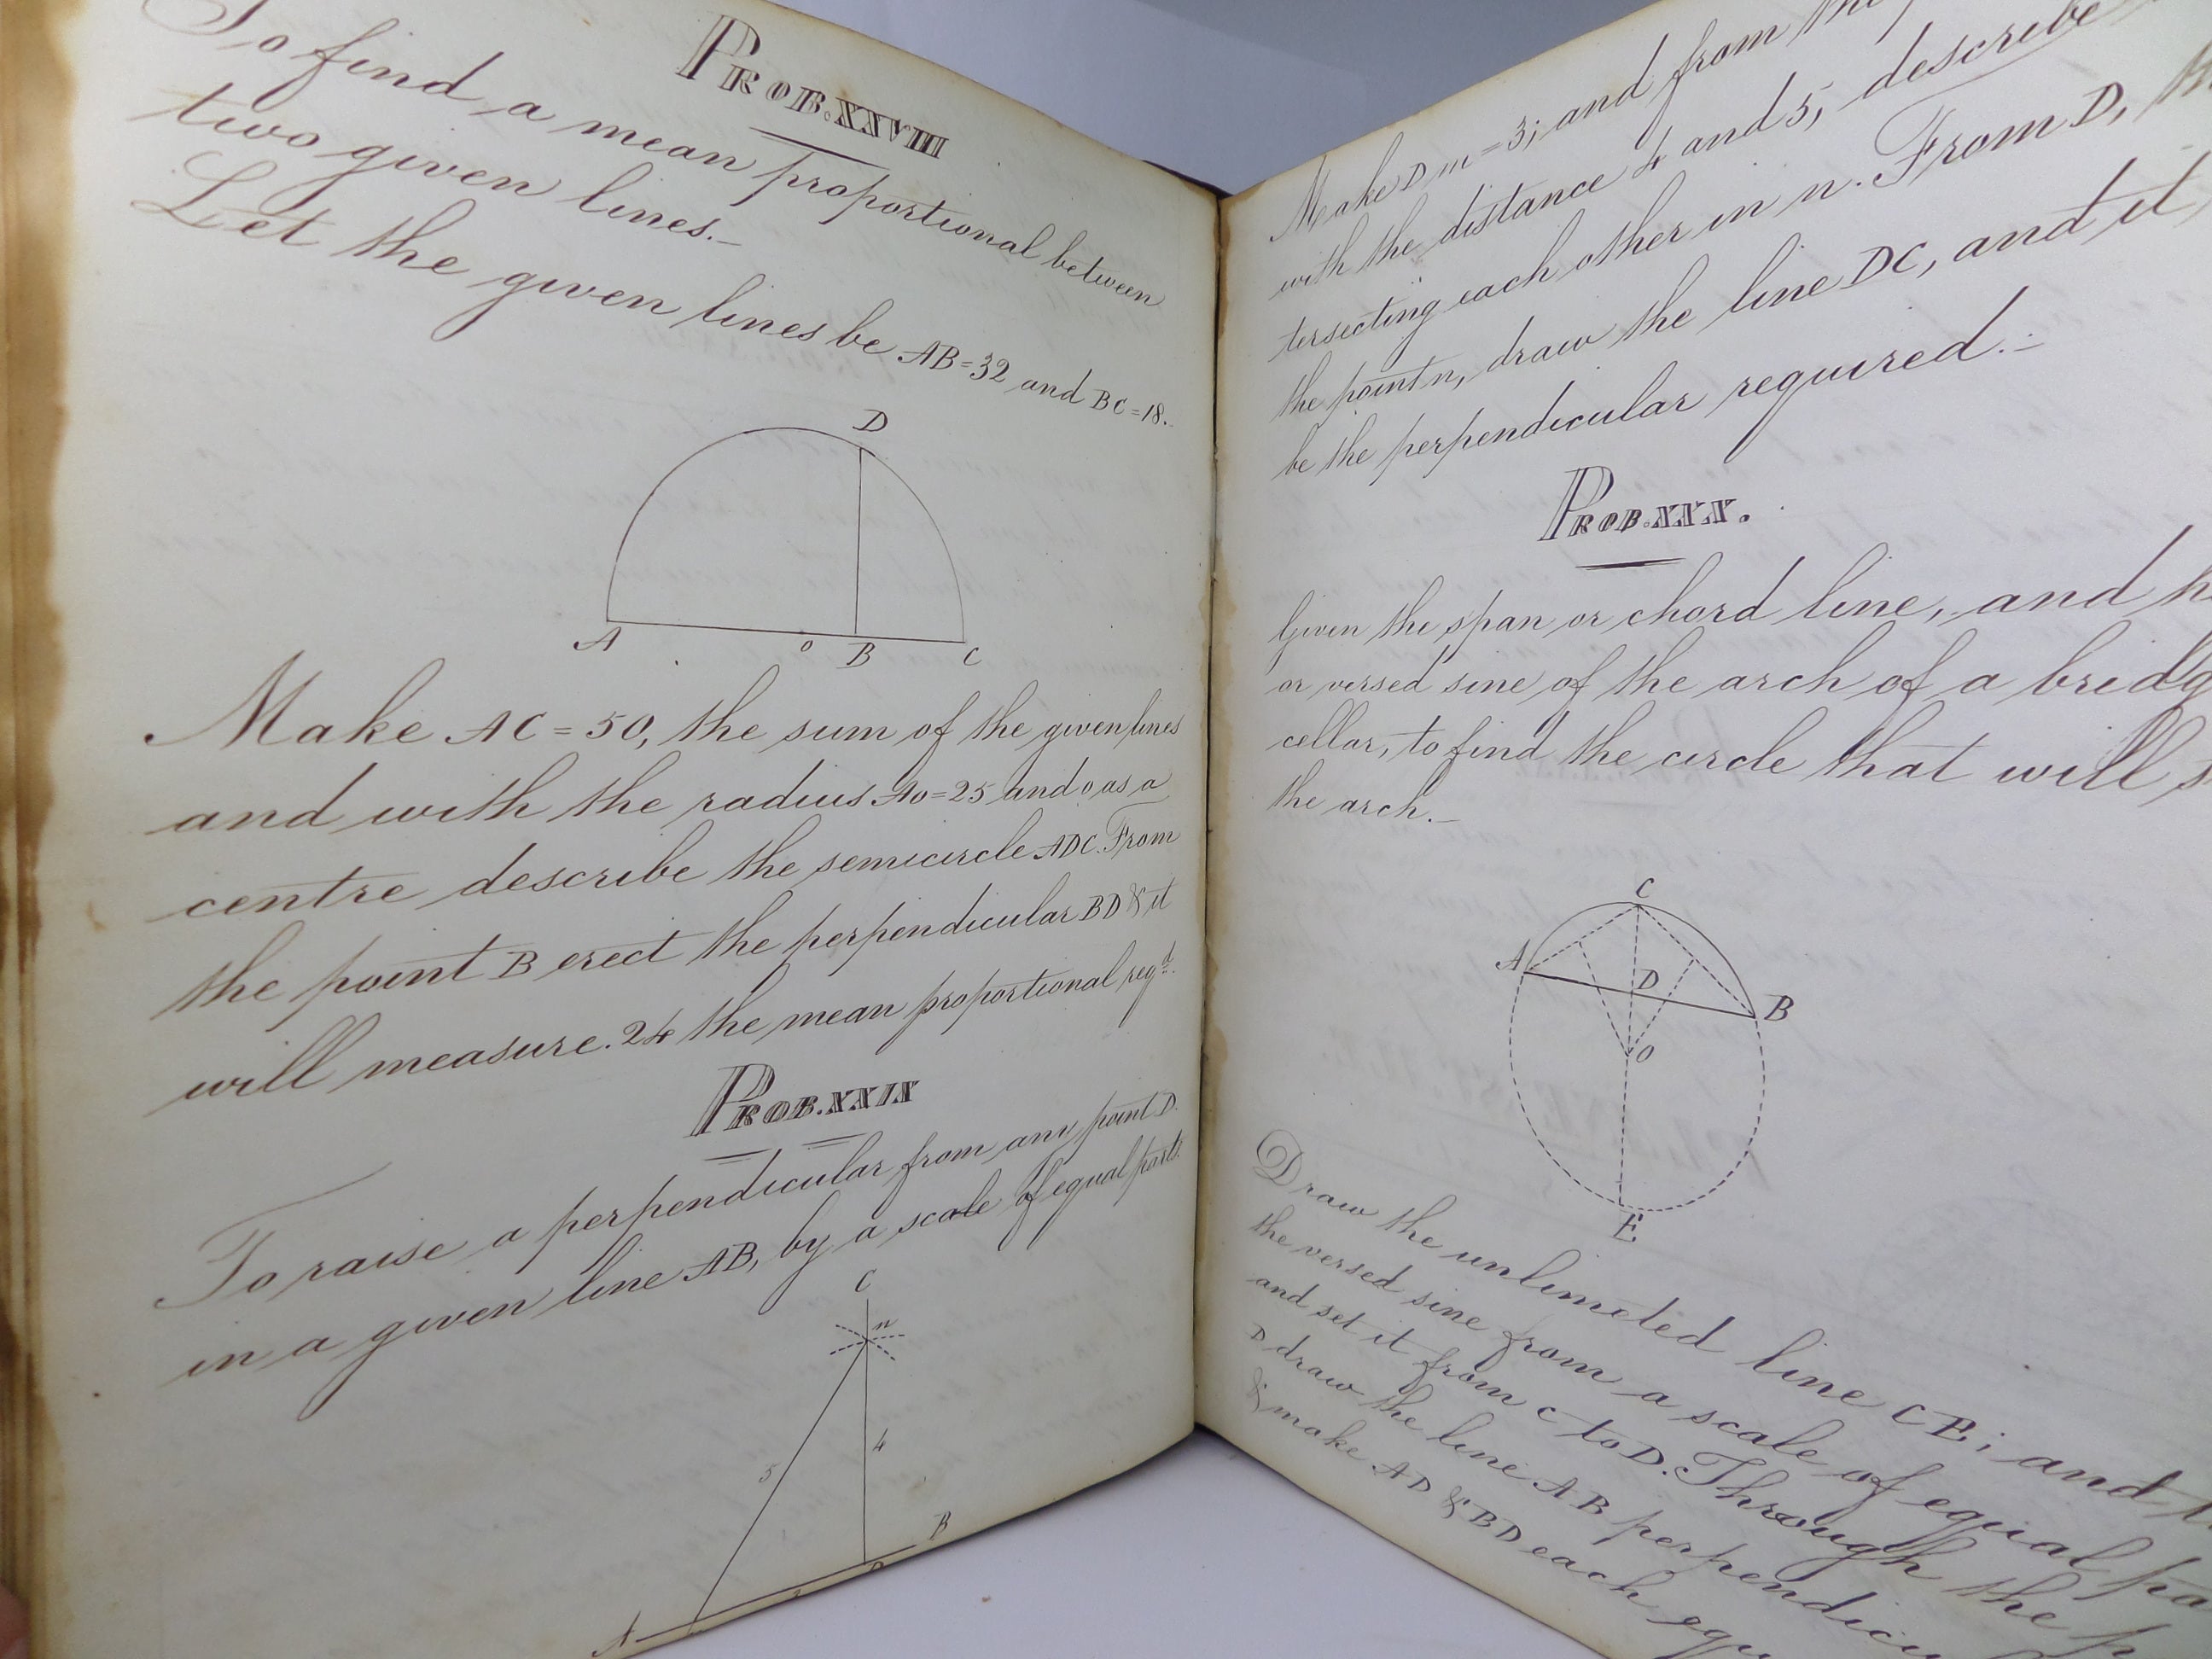 PROB. XXVIII
To find a mean proportional between
two given lines.—
Let the given lines be AB=32 and BC=18.
D
A o B C
Make AC=50, the sum of the given lines
and with the radius Ao=25 and o as a
centre describe the semicircle ADC. From
the point B erect the perpendicular BD & it
will measure. 24 the mean proportional reqd.
PROB. XXIX
To raise a perpendicular from any point D.
in a given line AB, by a scale of equal parts.
C
n
5 4
B
A
Make D m=3; and from the
with the distance 4 and 5, describe
tersecting each other in n. From D,
the point n, draw the line DC, and it
be the perpendicular required.
PROB. XXX.
Given the span or chord line, and
or versed sine of the arch of a
cellar, to find the circle that will
the arch.—
C
A D B
O
E
Draw the unlimeted line CE; and
the versed sine from a scale of equal
and set it from C to D. Through the
D draw the line AB
& make AD & BD each